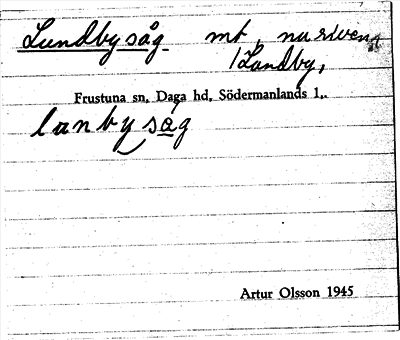 Lundby såg mt, nu riven,
/Landby,
Frustuna sn, Daga hd, Södermanlands l,.
lanby såg
Artur Olsson 1945